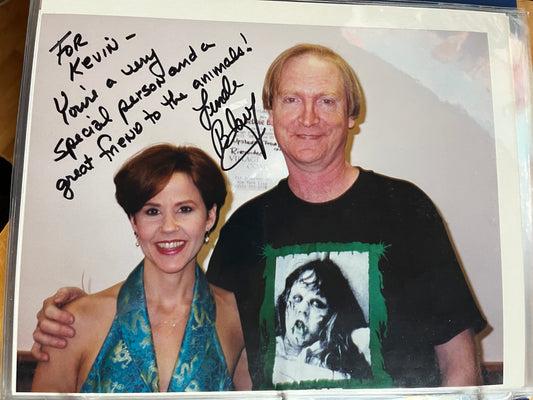 FOR
KEVIN -
You're a very
special person and a
great friend to the animals!
Linda
Blair